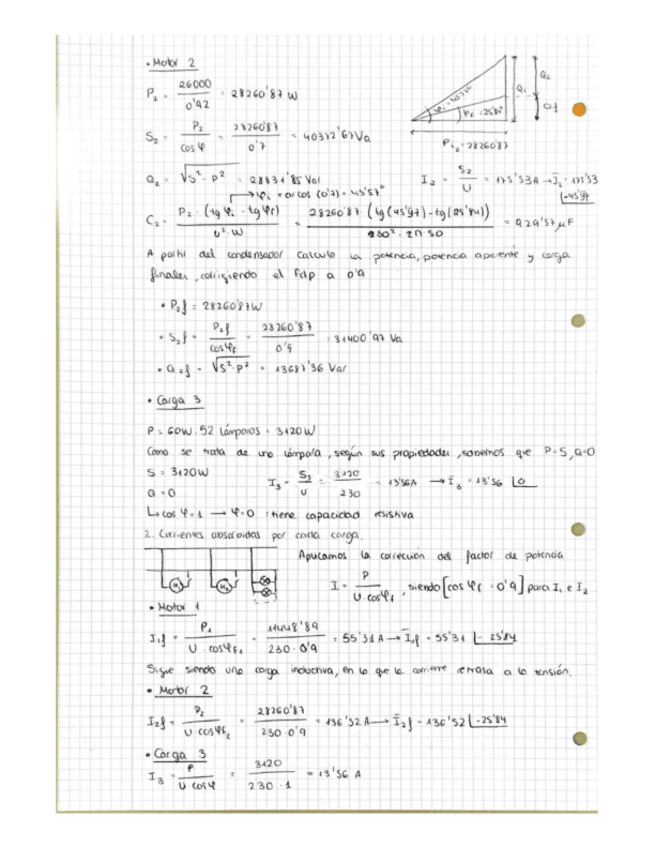 • Motor 2
P₂ = 26000 / 0'92 = 28260'87 W
S₂ = P₂ / cos φ = 28260'87 / 0'7 = 40372'67 Va
φi = 45'57° φf = 25'84° Qc Qi Qf
Pi₂ = 28260'87
Q₂ = √S² - P² = 28831'85 Var
I₂ = S₂ / U = 175'53 A → I̅₂ = 175'53 |-45'57
→ φi = arcos (0'7) = 45'57°
C₂ = P₂ · (tg φi - tg φf) / U² · W = 28260'87 (tg(45'57) - tg(25'84)) / 230² · 2π · 50 = 929'57 μF
A partir del condensador calculo la potencia, potencia aparente y carga
finales, corrigiendo el Fdp a 0'9
• P₂f = 28260'87 W
• S₂f = P₂f / cos φf = 28260'87 / 0'9 = 31400'97 Va
• Q₂f = √S² - P² = 13687'36 Var
• Carga 3
P = 60W · 52 lámparas = 3120 W
Como se trata de una lámpara, según sus propiedades, sabemos que P=S, Q=0
S = 3120 W
I₃ = S₃ / U = 3120 / 230 = 13'56 A → I̅₃ = 13'56 |0
Q = 0
↳ cos φ = 1 → φ = 0 : tiene capacidad resistiva
2. Corrientes absorbidas por cada carga.
Aplicamos la corrección del factor de potencia
M₁ M₂
I = P / U · cos φf, siendo [cos φf = 0'9] para I₁ e I₂
• Motor 1
I₁f = P₁ / U · cos φf₁ = 11448'89 / 230 · 0'9 = 55'31 A → I̅₁f = 55'31 |- 25'84
Sigue siendo una carga inductiva, en la que la corriente retrasa a la tensión.
• Motor 2
I₂f = P₂ / U · cos φf₂ = 28260'87 / 230 · 0'9 = 136'52 A → I̅₂f = 136'52 |-25'84
• Carga 3
I₃ = P / U cos φ = 3120 / 230 · 1 = 13'56 A